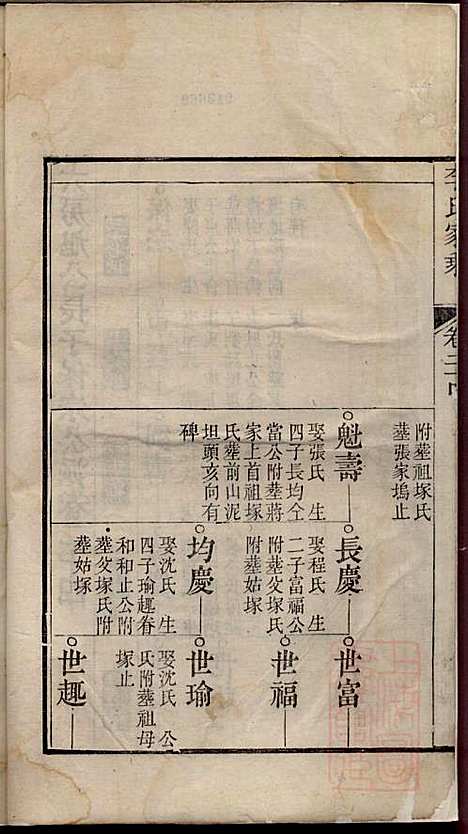 李氏家乘
卷二十
附葬祖塚氏
葬張家塢止
魁壽
娶張氏 生
四子長均仝
當公附葬將
家上首祖塚
氏葬前山泥
坦頭亥向有
碑
長慶
娶程氏 生
二子富福公
附葬父塚氏
附葬姑塚
世富
世福
均慶
娶沈氏 生
四子瑜趯眷
和和止公附
葬父塚氏附
葬姑塚
世瑜
娶沈氏 公
氏附葬祖母
塚止
世趣